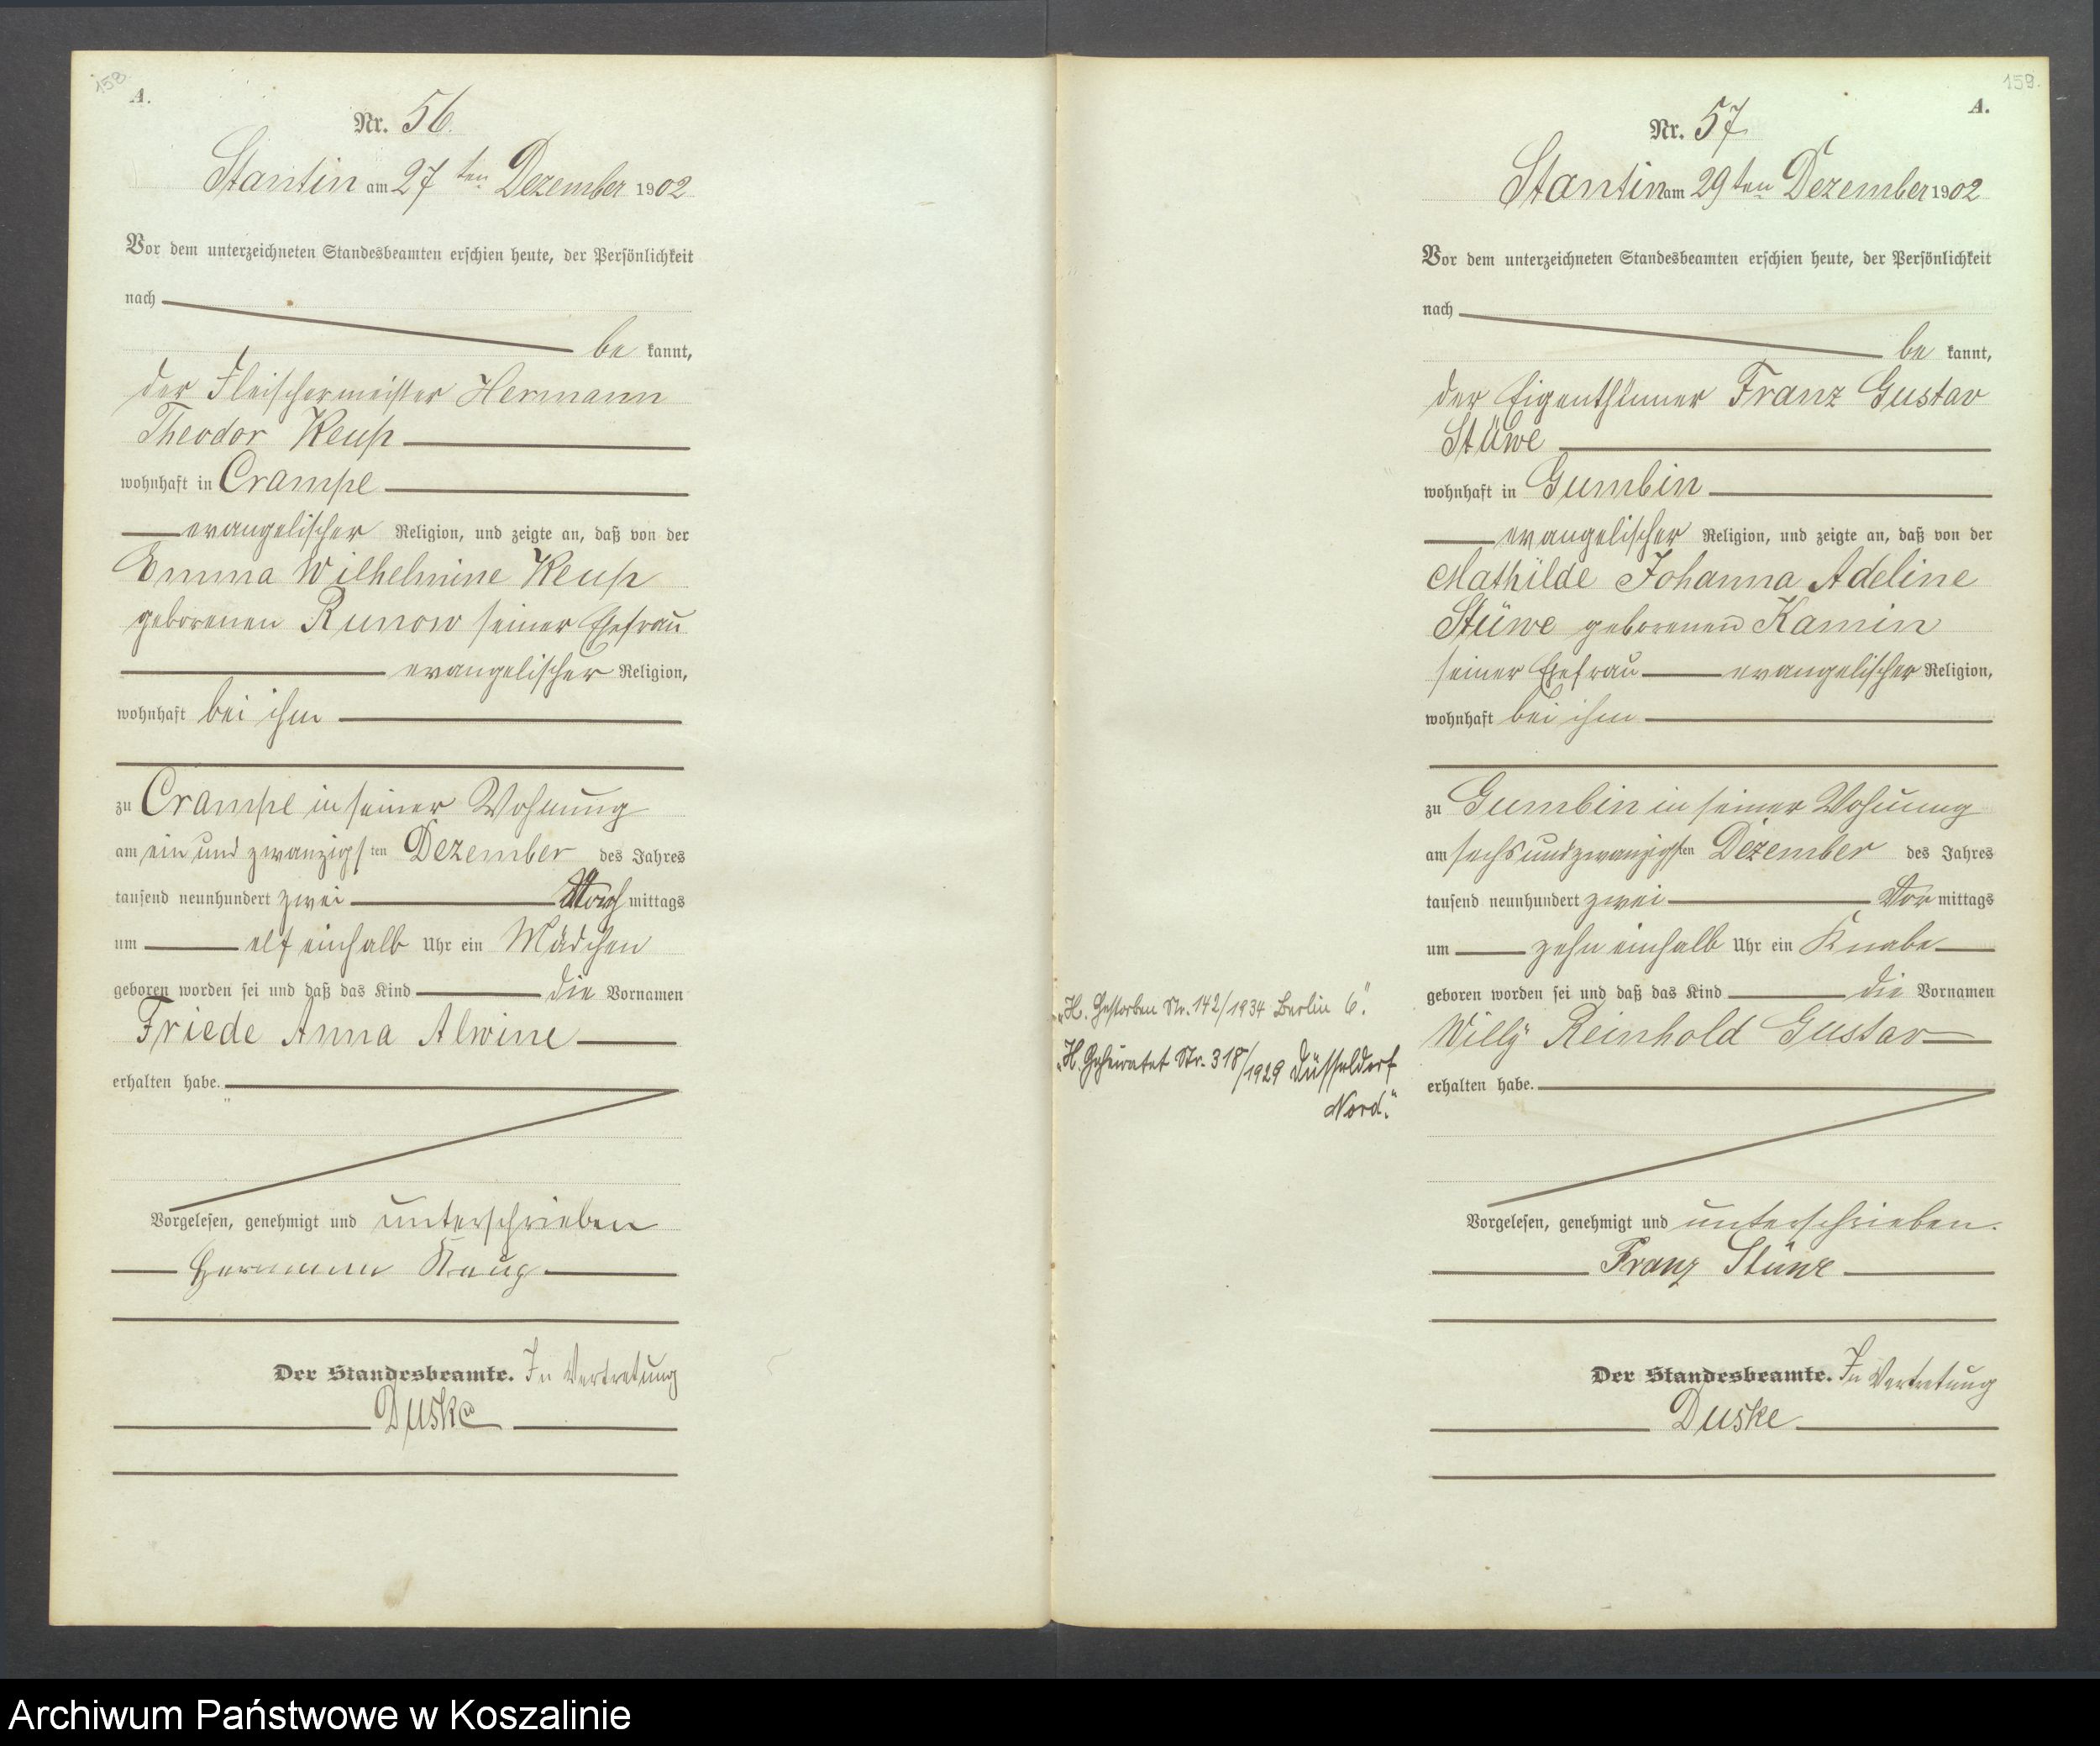 158
A.
Nr. 56.
Stantin am 27 ten Dezember 1902
Vor dem unterzeichneten Standesbeamten erschien heute, der Persönlichkeit
nach
be kannt,
der Fleischermeister Hermann
Theodor Keup
wohnhaft in Crampe
evangelischer Religion, und zeigte an, daß von der
Emma Wilhelmine Keup
geborenen Runow seiner Ehefrau
evangelischer Religion,
wohnhaft bei ihm
zu Crampe in seiner Wohnung
am ein und zwanzigsten Dezember des Jahres
tausend neunhundert zwei mittags
um elf einhalb Uhr ein Mädchen
geboren worden sei und daß das Kind die Vornamen
Friede Anna Alwine
erhalten habe.
Vorgelesen, genehmigt und unterschrieben
Hermann Keup
Der Standesbeamte. In Vertretung
Duske
159.
A.
Nr. 57
Stantin am 29 ten Dezember 1902
Vor dem unterzeichneten Standesbeamten erschien heute, der Persönlichkeit
nach
be kannt,
der Eigenthümer Franz Gustav
Stüwe
wohnhaft in Gumbin
evangelischer Religion, und zeigte an, daß von der
Mathilde Johanna Adeline
Stüwe geborenen Kamin
seiner Ehefrau evangelischer Religion,
wohnhaft bei ihm
zu Gumbin in seiner Wohnung
am sechs und zwanzigsten Dezember des Jahres
tausend neunhundert zwei Vor mittags
um zehn einhalb Uhr ein Knabe
geboren worden sei und daß das Kind die Vornamen
Willy Reinhold Gustav
erhalten habe.
„H. Gestorben Nr. 142/1934 Berlin 6."
„H. Geheiratet Nr. 318/1929 Düsseldorf
Nord."
Vorgelesen, genehmigt und unterschrieben.
Franz Stüwe
Der Standesbeamte. In Vertretung
Duske
Archiwum Państwowe w Koszalinie